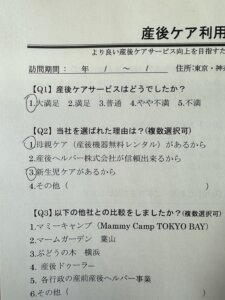 産後ケア利用
より良い産後ケアサービス向上を目指すた
訪問期間： 年 / ～ / 住所:東京・神
【Q1】産後ケアサービスはどうでしたか？
1.大満足 2.満足 3.普通 4.やや不満 5.不満
【Q2】当社を選ばれた理由は？(複数選択可)
1.母親ケア（産後機器無料レンタル）があるから
2.産後ヘルパー株式会社が信頼出来るから
3.新生児ケアがあるから
4.その他（ ）
【Q3】以下の他社との比較をしましたか？(複数選択可)
1.マミーキャンプ（Mammy Camp TOKYO BAY）
2.マームガーデン 葉山
3.ぶどうの木 横浜
4. 産後ドゥーラー
5. 各行政の産前産後ヘルパー事業
6.その他（ ）